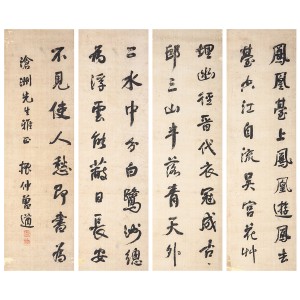 鳳凰臺上鳳凰遊鳳去
臺空江自流吳宮花草
埋幽徑晉代衣冠成古
邱三山半落青天外
二水中分白鷺洲總
為浮雲能蔽日長安
不見使人愁即書為
滄洲先生雅正